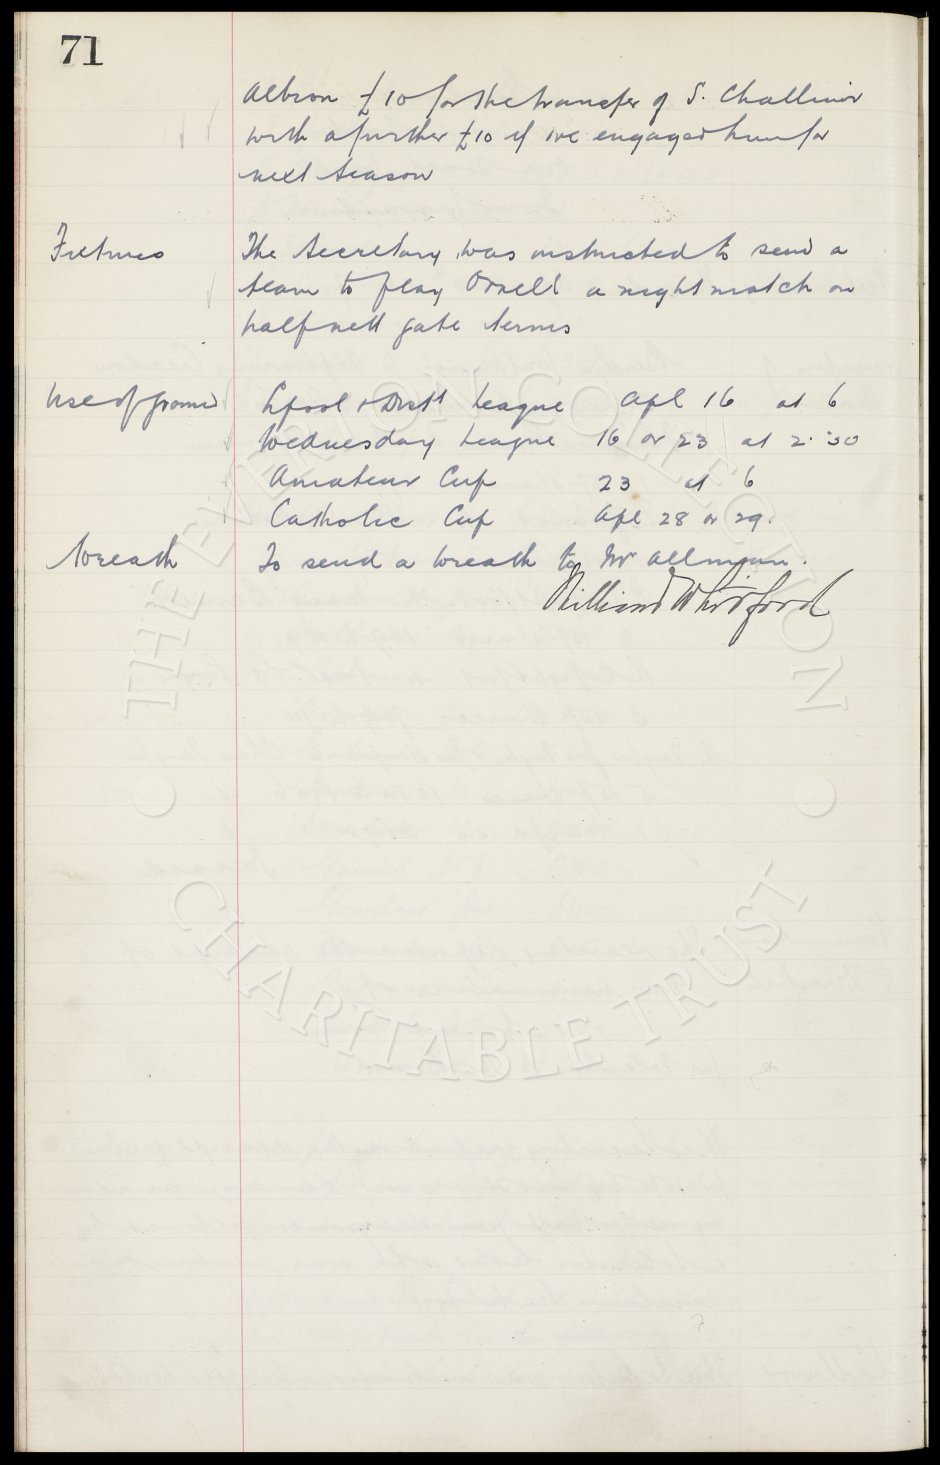 71
Albion £10 for the transfer of S. Challinor
with a further £10 if we engaged him for
next season
Fixtures The Secretary was instructed to send a
team to play Orrell a night match on
half nett gate terms
Use of ground Lpool & Dist League Apl 16 at 6
Wednesday League 16 or 23 at 2.30
Amateur Cup 23 at 6
Catholic Cup Apl 28 or 29.
Wreath To send a wreath to Mr Allman.
William Whitford
THE EVERTON COLLECTION
CHARITABLE TRUST